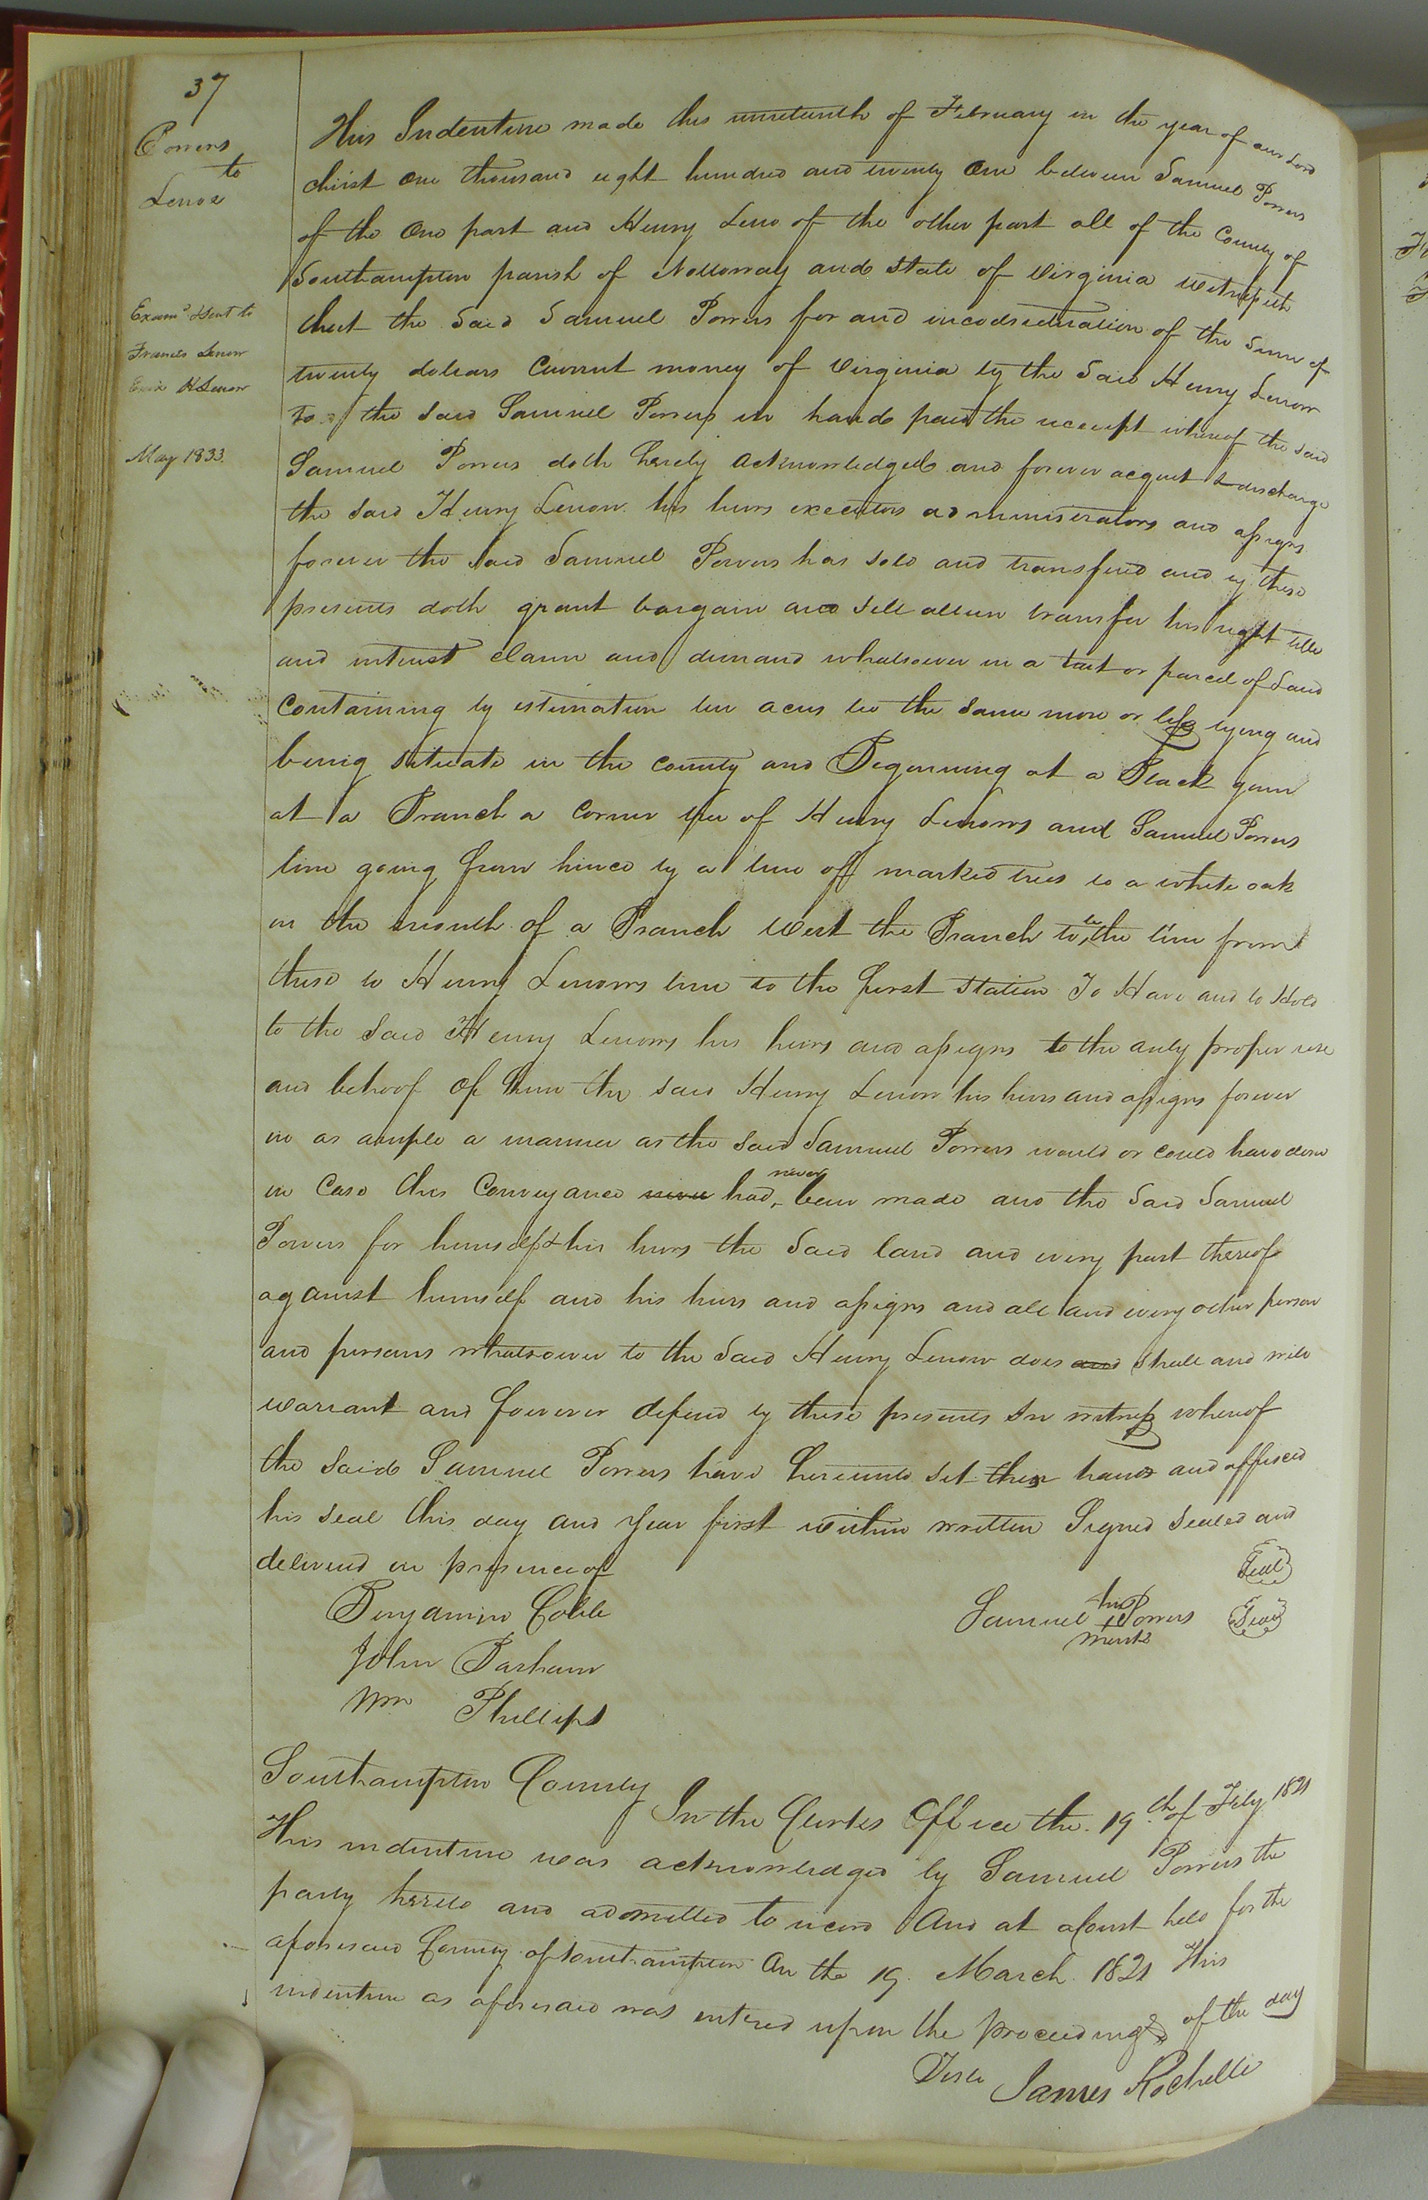 37
Powers
to
Lenow
Examd & sent to
Francis Lenow
Exor H Lenow
May 1833
This Indenture made this nineteenth of February in the year of our Lord
christ one thousand eight hundred and twenty One between Samuel Powers
of the One part and Henry Leno of the other part all of the County of
Southampton parish of Nottoway and State of Virginia Witnesseth
that the Said Samuel Powers for and inconsideration of the Sum of
twenty dollars Current money of Virginia by the Said Henry Lenow
to the Said Samuel Powers in hand paid the receipt whereof the said
Samuel Powers doth hereby acknowledged and forever acquit & discharge
the said Henry Lenow his heirs executors administrators and assigns
forever the said Samuel Powers has sold and transferd and by these
presents doth grant bargain and Sell alien transfer his right title
and interest claim and demand whatsoever in a tract or parcel of Land
Containing by estimation ten acres be the same more or less lying and
being situate in the county and Beginning at a Black gum
at a Branch a corner tree of Henry Lenows and Samuel Powers
line going from hence by a line off marked trees to a white oak
in the mouth of a Branch West the Branch to be the line from
these to Henry Lenows line to the first Station To Have and to Hold
to the Said Henry Lenows his heirs and assigns to the only proper use
and behoof of him the said Henry Lenow his heirs and assigns forever
in as ample a manner as the said Samuel Powers would or could have done
in Case this Conveyance never had never been made and the Said Samuel
Powers for himself & his heirs the Said land and every part thereof
against himself and his heirs and assigns and all and every other person
and persons whatsoever to the Said Henry Lenow does and shall and will
warrant and forever defend by these presents In witness whereof
the Said Samuel Powers have hereunto set their hands and affixed
his seal this day and Year first within written Signed Sealed and
delivered in presence of
Seal
Benjamin Cobb
his
Samuel P Powers Seal
mark
John Barham
Wm Phillips
Southampton County
In the Clerks Office the 19th of Feby 1821
This indenture was acknowledged by Samuel Powers the
party hereto and admitted to record And at a Court held for the
aforesaid County of Southampton On the 19 March 1821 This
indenture as aforesaid was entered upon the proceedings of the day
Teste James Rochelle